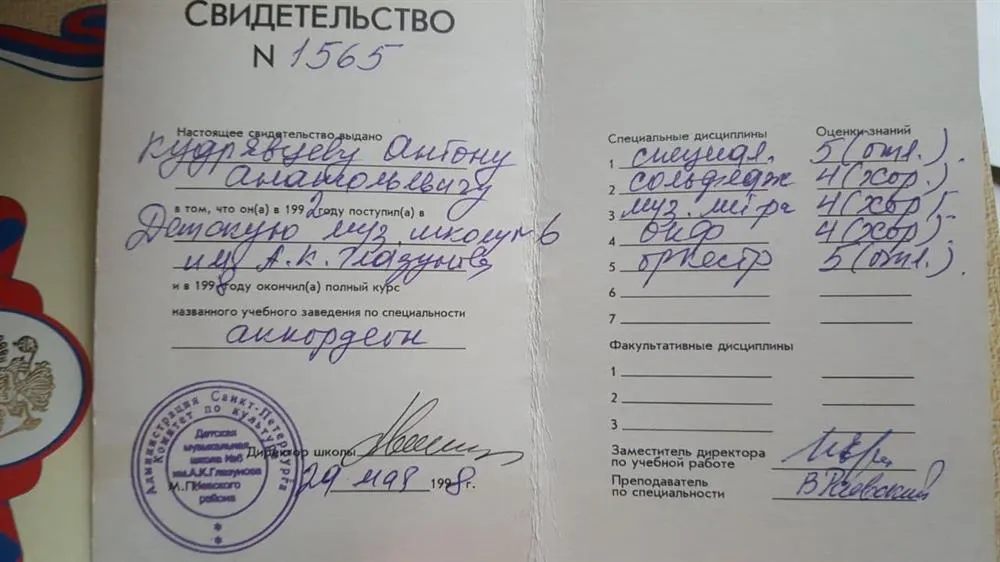 СВИДЕТЕЛЬСТВО
N 1565
Настоящее свидетельство выдано
Кудрявцеву Антону
Анатольевичу
в том, что он(а) в 1992 году поступил(а) в
Детскую муз. школу №6
им. А.К. Глазунова
и в 1998 году окончил(а) полный курс
названного учебного заведения по специальности
аккордеон
Администрация Санкт-Петербурга
Комитет по культуре
Детская
музыкальная
школа №6
им.А.К.Глазунова
Невского
района
Директор школы
М.П.
29 мая 1998 г.
Специальные дисциплины Оценки знаний
1 специал. 5 (отл.)
2 сольфеджио 4 (хор.)
3 муз. лит-ра 4 (хор)
4 4 (хор)
5 оркестр 5 (отл.)
6
7
Факультативные дисциплины
1
2
3
Заместитель директора
по учебной работе
Преподаватель
по специальности